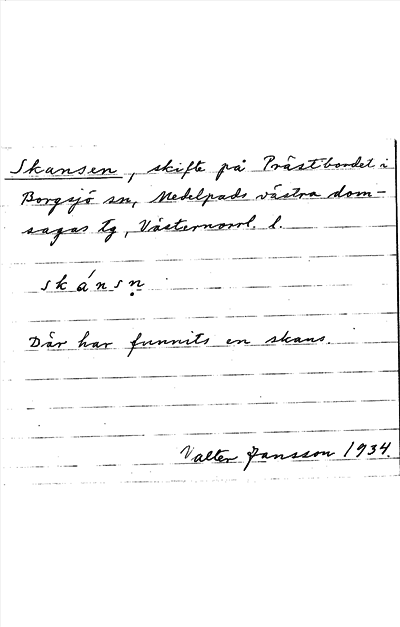 Skansen, skifte på Prästbordet i
Borgsjö sn, Medelpads västra dom-
sagas tg, Västernorrl. l.
skánsn̥
Där har funnits en skans.
Valter Jansson 1934.